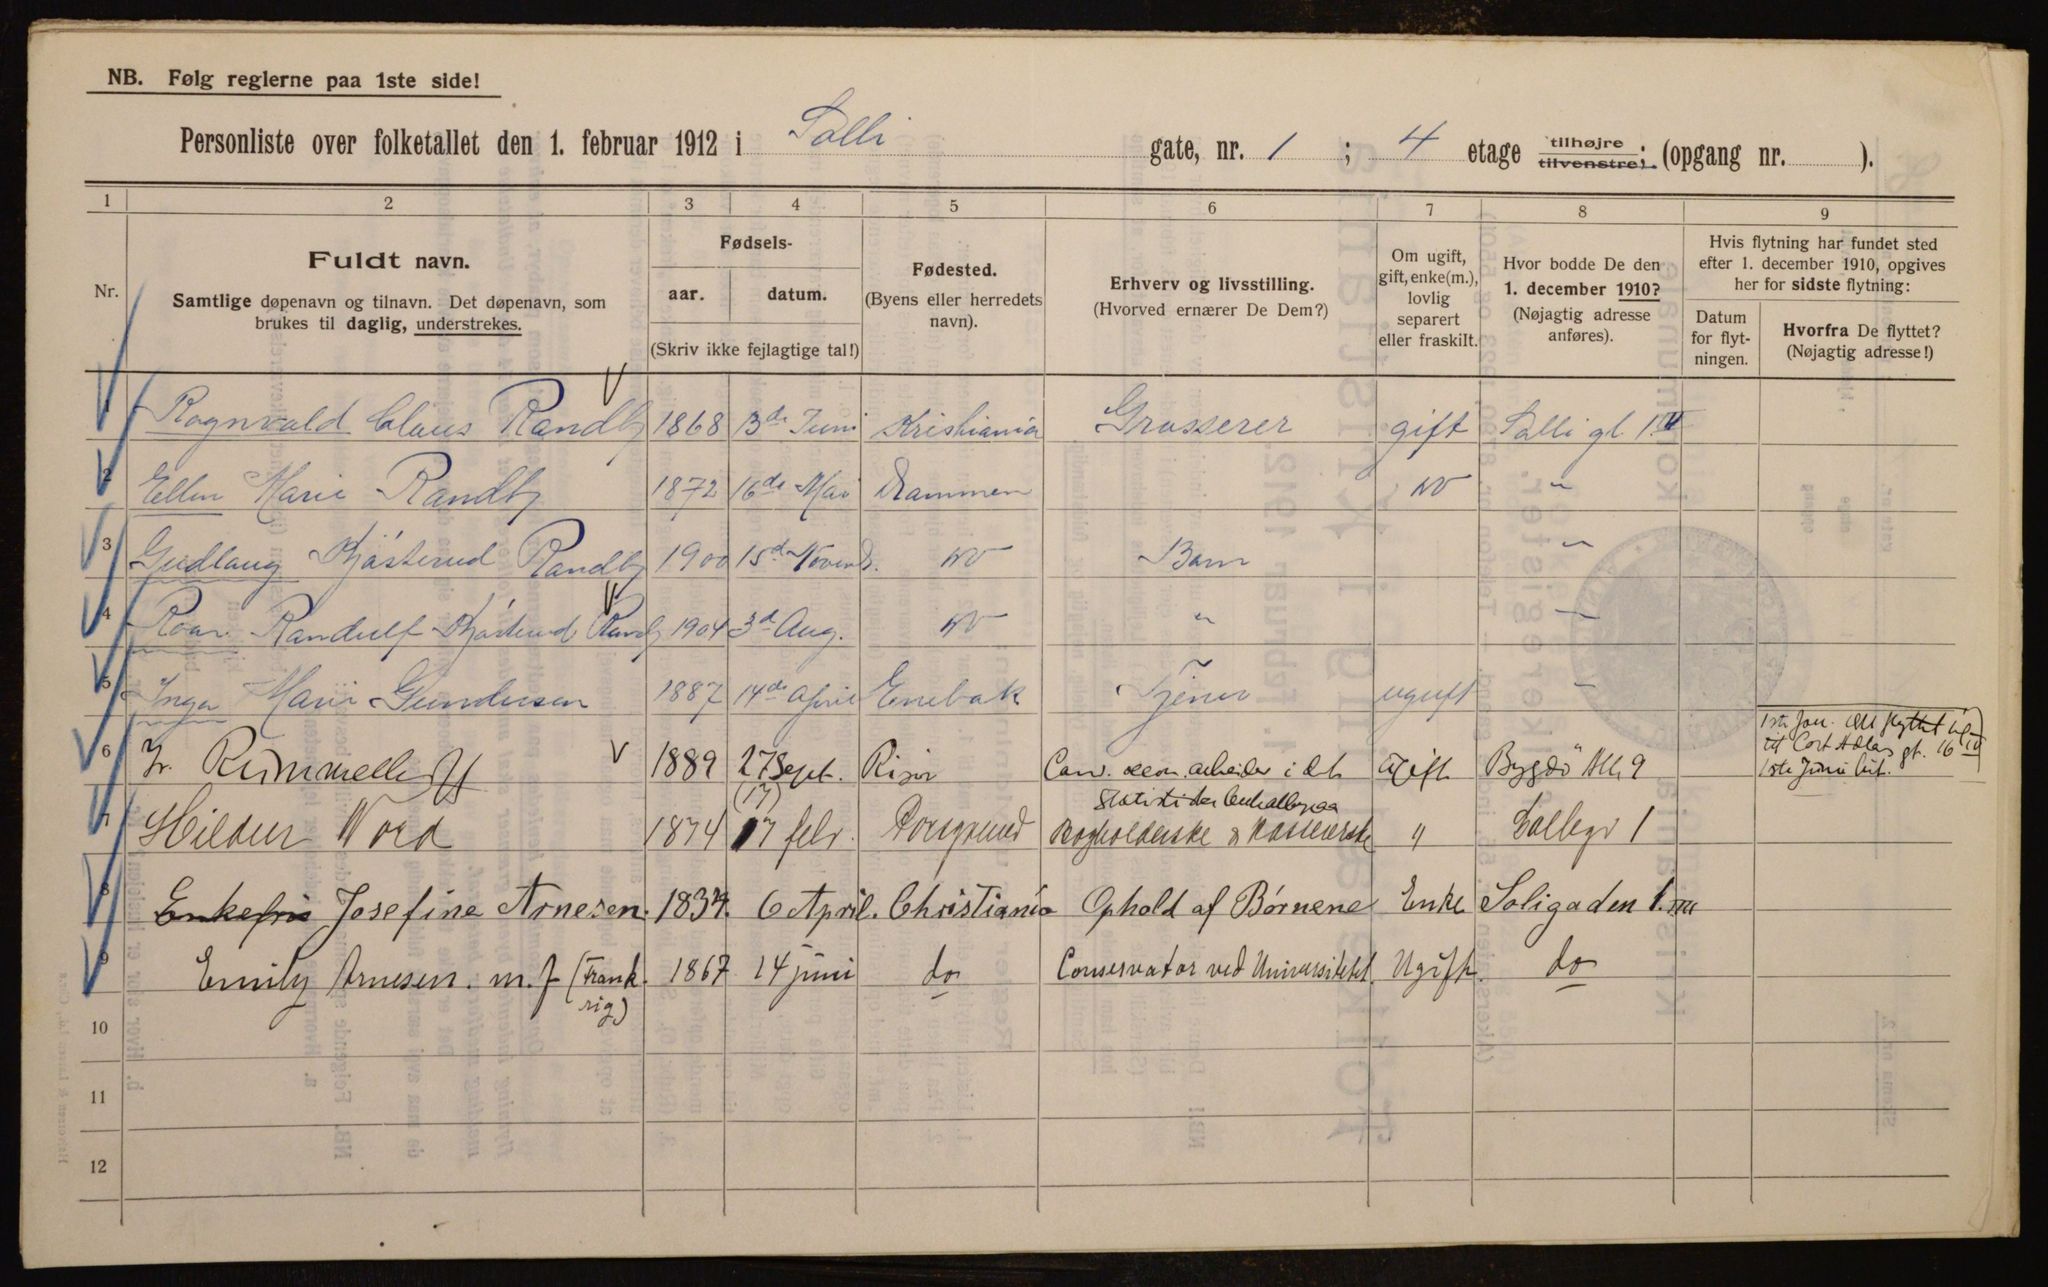 NB. Følg reglerne paa 1ste side!
Personliste over folketallet den 1. februar 1912 i Solli gate, nr. 1 ; 4 etage tilhøjre tilvenstre; (opgang nr. ).
1 2 3 4 5 6 7 8 9
Nr.
Fuldt navn.
Samtlige døpenavn og tilnavn. Det døpenavn, som
brukes til daglig, understrekes.
Fødsels-
aar. datum.
(Skriv ikke fejlagtige tal!)
Fødested.
(Byens eller herredets
navn).
Erhverv og livsstilling.
(Hvorved ernærer De Dem?)
Om ugift,
gift, enke(m.),
lovlig
separert
eller fraskilt.
Hvor bodde De den
1. december 1910?
(Nøjagtig adresse
anføres).
Hvis flytning har fundet sted
efter 1. december 1910, opgives
her for sidste flytning:
Datum
for flyt-
ningen.
Hvorfra De flyttet?
(Nøjagtig adresse!)
1 Ragnvald Claus Randby 1868 13de Juni Kristiania Grosserer gift Solli gt. 1
2 Ellen Marie Randby 1872 16de Mai Drammen "
3 Gudlaug Randby 1900 15d Novemb. Barn "
4 Roar Randulf Randby 1904 3d Aug. " "
5 Inga Marie Gundersen 1887 14de April Enebak Tjener ugift "
6 Fr. Rimmelhoff 1889 27 Sept. Risør Cand. oecon. arbeider i det Ugift Bygdö Allé 9
(17) Statistiske Centralbyraa
1ste Jan.
til Cort Adelers gt. 16
1ste Juni
7 Hildur Nord 1874 17 febr. Porsgrund Bogholderske & Kassererske " Solligt 1
8 Enkefru Josefine Arnesen. 1837. 6 April. Christiania Ophold af Børnene Enke Soligaden 1. III
9 Emily Arnesen. m. f (Frank. 1867 14 juni do Conservator ved Universitetet. Ugift. do
rig)
10
11
12